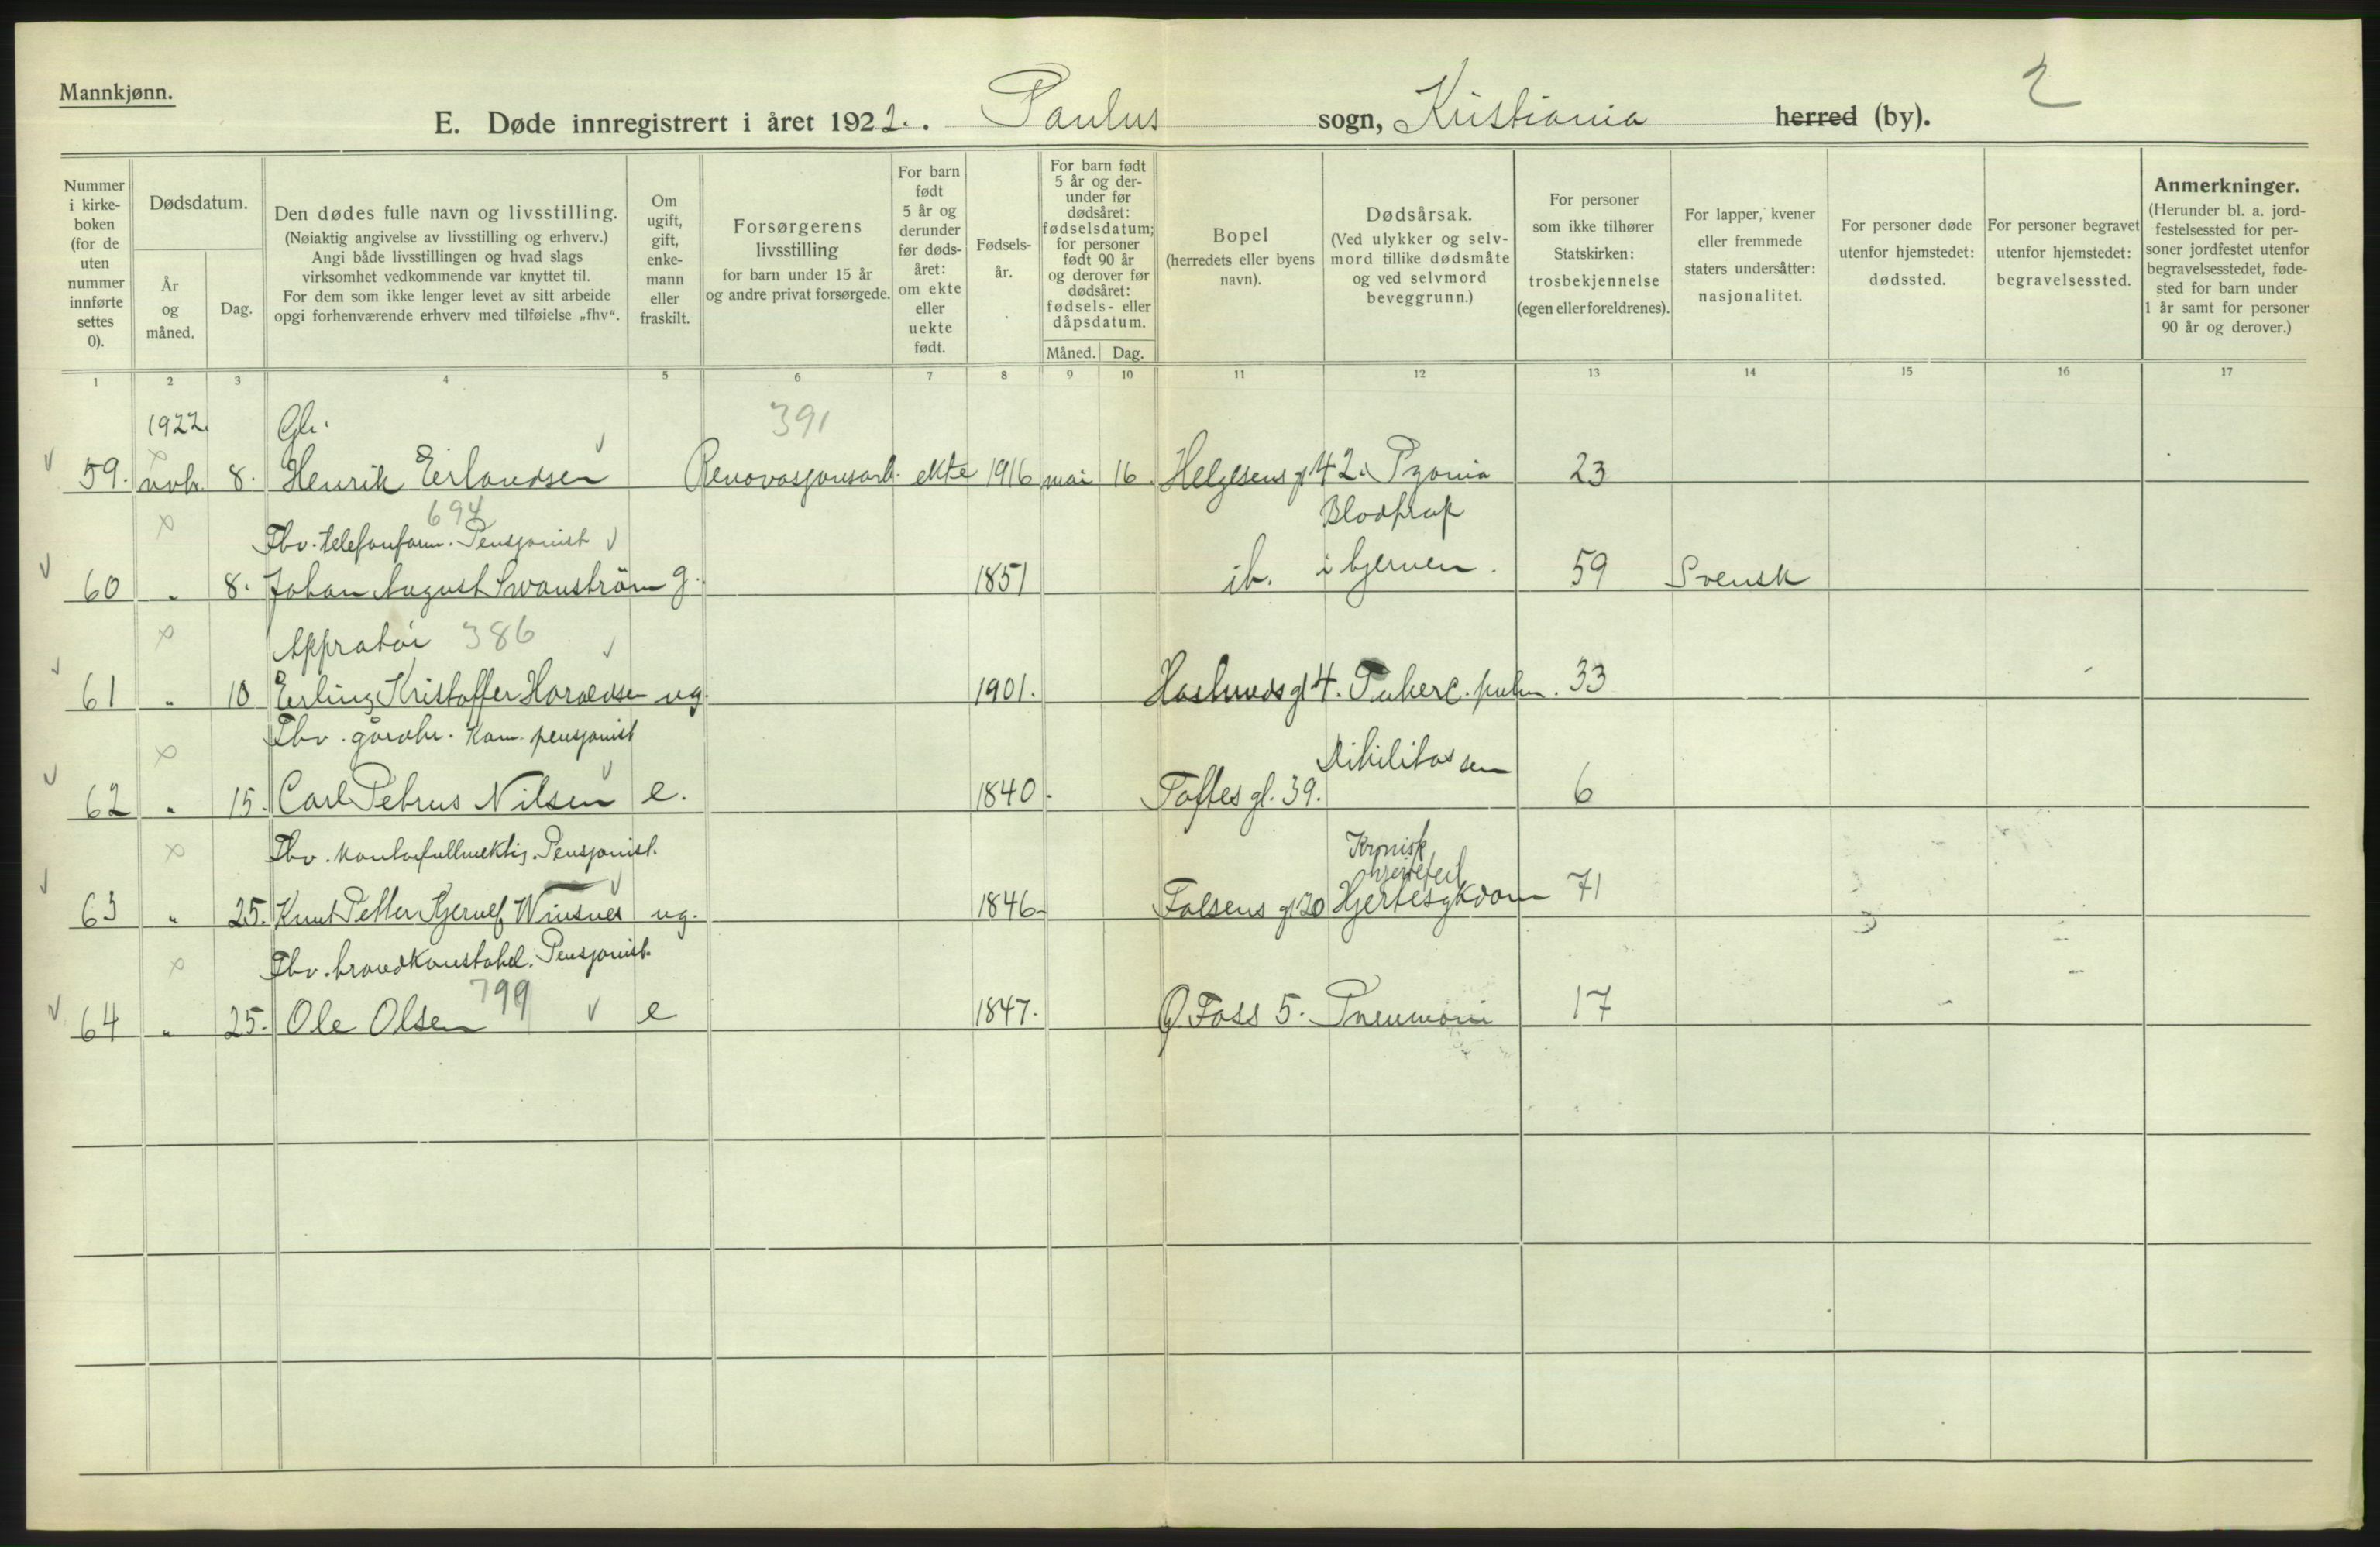 Mannkjønn.
2
E. Døde innregistrert i året 1922. Paulus sogn, Kristiania herred (by).
Nummer i kirkeboken (for de uten nummer innførte settes 0).
Dødsdatum.
År og måned.
Dag.
Den dødes fulle navn og livsstilling.
(Nøiaktig angivelse av livsstilling og erhverv.)
Angi både livsstillingen og hvad slags
virksomhet vedkommende var knyttet til.
For dem som ikke lenger levet av sitt arbeide
opgi forhenværende erhverv med tilføielse „fhv“.
Om ugift, gift, enkemann eller fraskilt.
Forsørgerens livsstilling
for barn under 15 år
og andre privat forsørgede.
For barn født 5 år og derunder før dødsåret: om ekte eller uekte født.
Fødselsår.
For barn født 5 år og derunder før dødsåret: fødselsdatum; for personer født 90 år og derover før dødsåret: fødsels- eller dåpsdatum.
Måned. Dag.
Bopel
(herredets eller byens navn).
Dødsårsak.
(Ved ulykker og selvmord tillike dødsmåte og ved selvmord beveggrunn.)
For personer som ikke tilhører Statskirken: trosbekjennelse (egen eller foreldrenes).
For lapper, kvener eller fremmede staters undersåtter: nasjonalitet.
For personer døde utenfor hjemstedet: dødssted.
For personer begravet utenfor hjemstedet: begravelsessted.
Anmerkninger.
(Herunder bl. a. jordfestelsessted for personer jordfestet utenfor begravelsesstedet, fødested for barn under 1 år samt for personer 90 år og derover.)
1 2 3 4 5 6 7 8 9 10 11 12 13 14 15 16 17
1922. 391
59. novb. 8. Henrik Erlandsen Renovasjonsarb. ekte 1916 mai 16. Helgesens gt 42. Pyæmia 23
694 Blodprop
Fhv. telefonform. Pensjonist
60 " 8. Johan August Swanström g. 1851 ib. i hjernen. 59 Svensk
Appratør 386
61 " 10 Erling Kristoffer Haraldsen ug. 1901. Haslunds gt 4. Tuberc. pulm. 33
Fhv. gårdbr. Kom. pensjonist
Dibilitas sen
62 " 15. Carl Petrus Nilsen e. 1840. Toftes gt. 39. 6
Fhv. kontorfullmektig. Pensjonist. Kronisk
hjertefeil
63 " 25. Knut Petter Hjerulf Winsnes ug. 1846 Falsens gt 20 Hjertesykdom 71
Fhv. brandkonstabel. Pensjonist.
799
64 " 25. Ole Olsen e 1847. O. Foss 5. Pneumoni 17